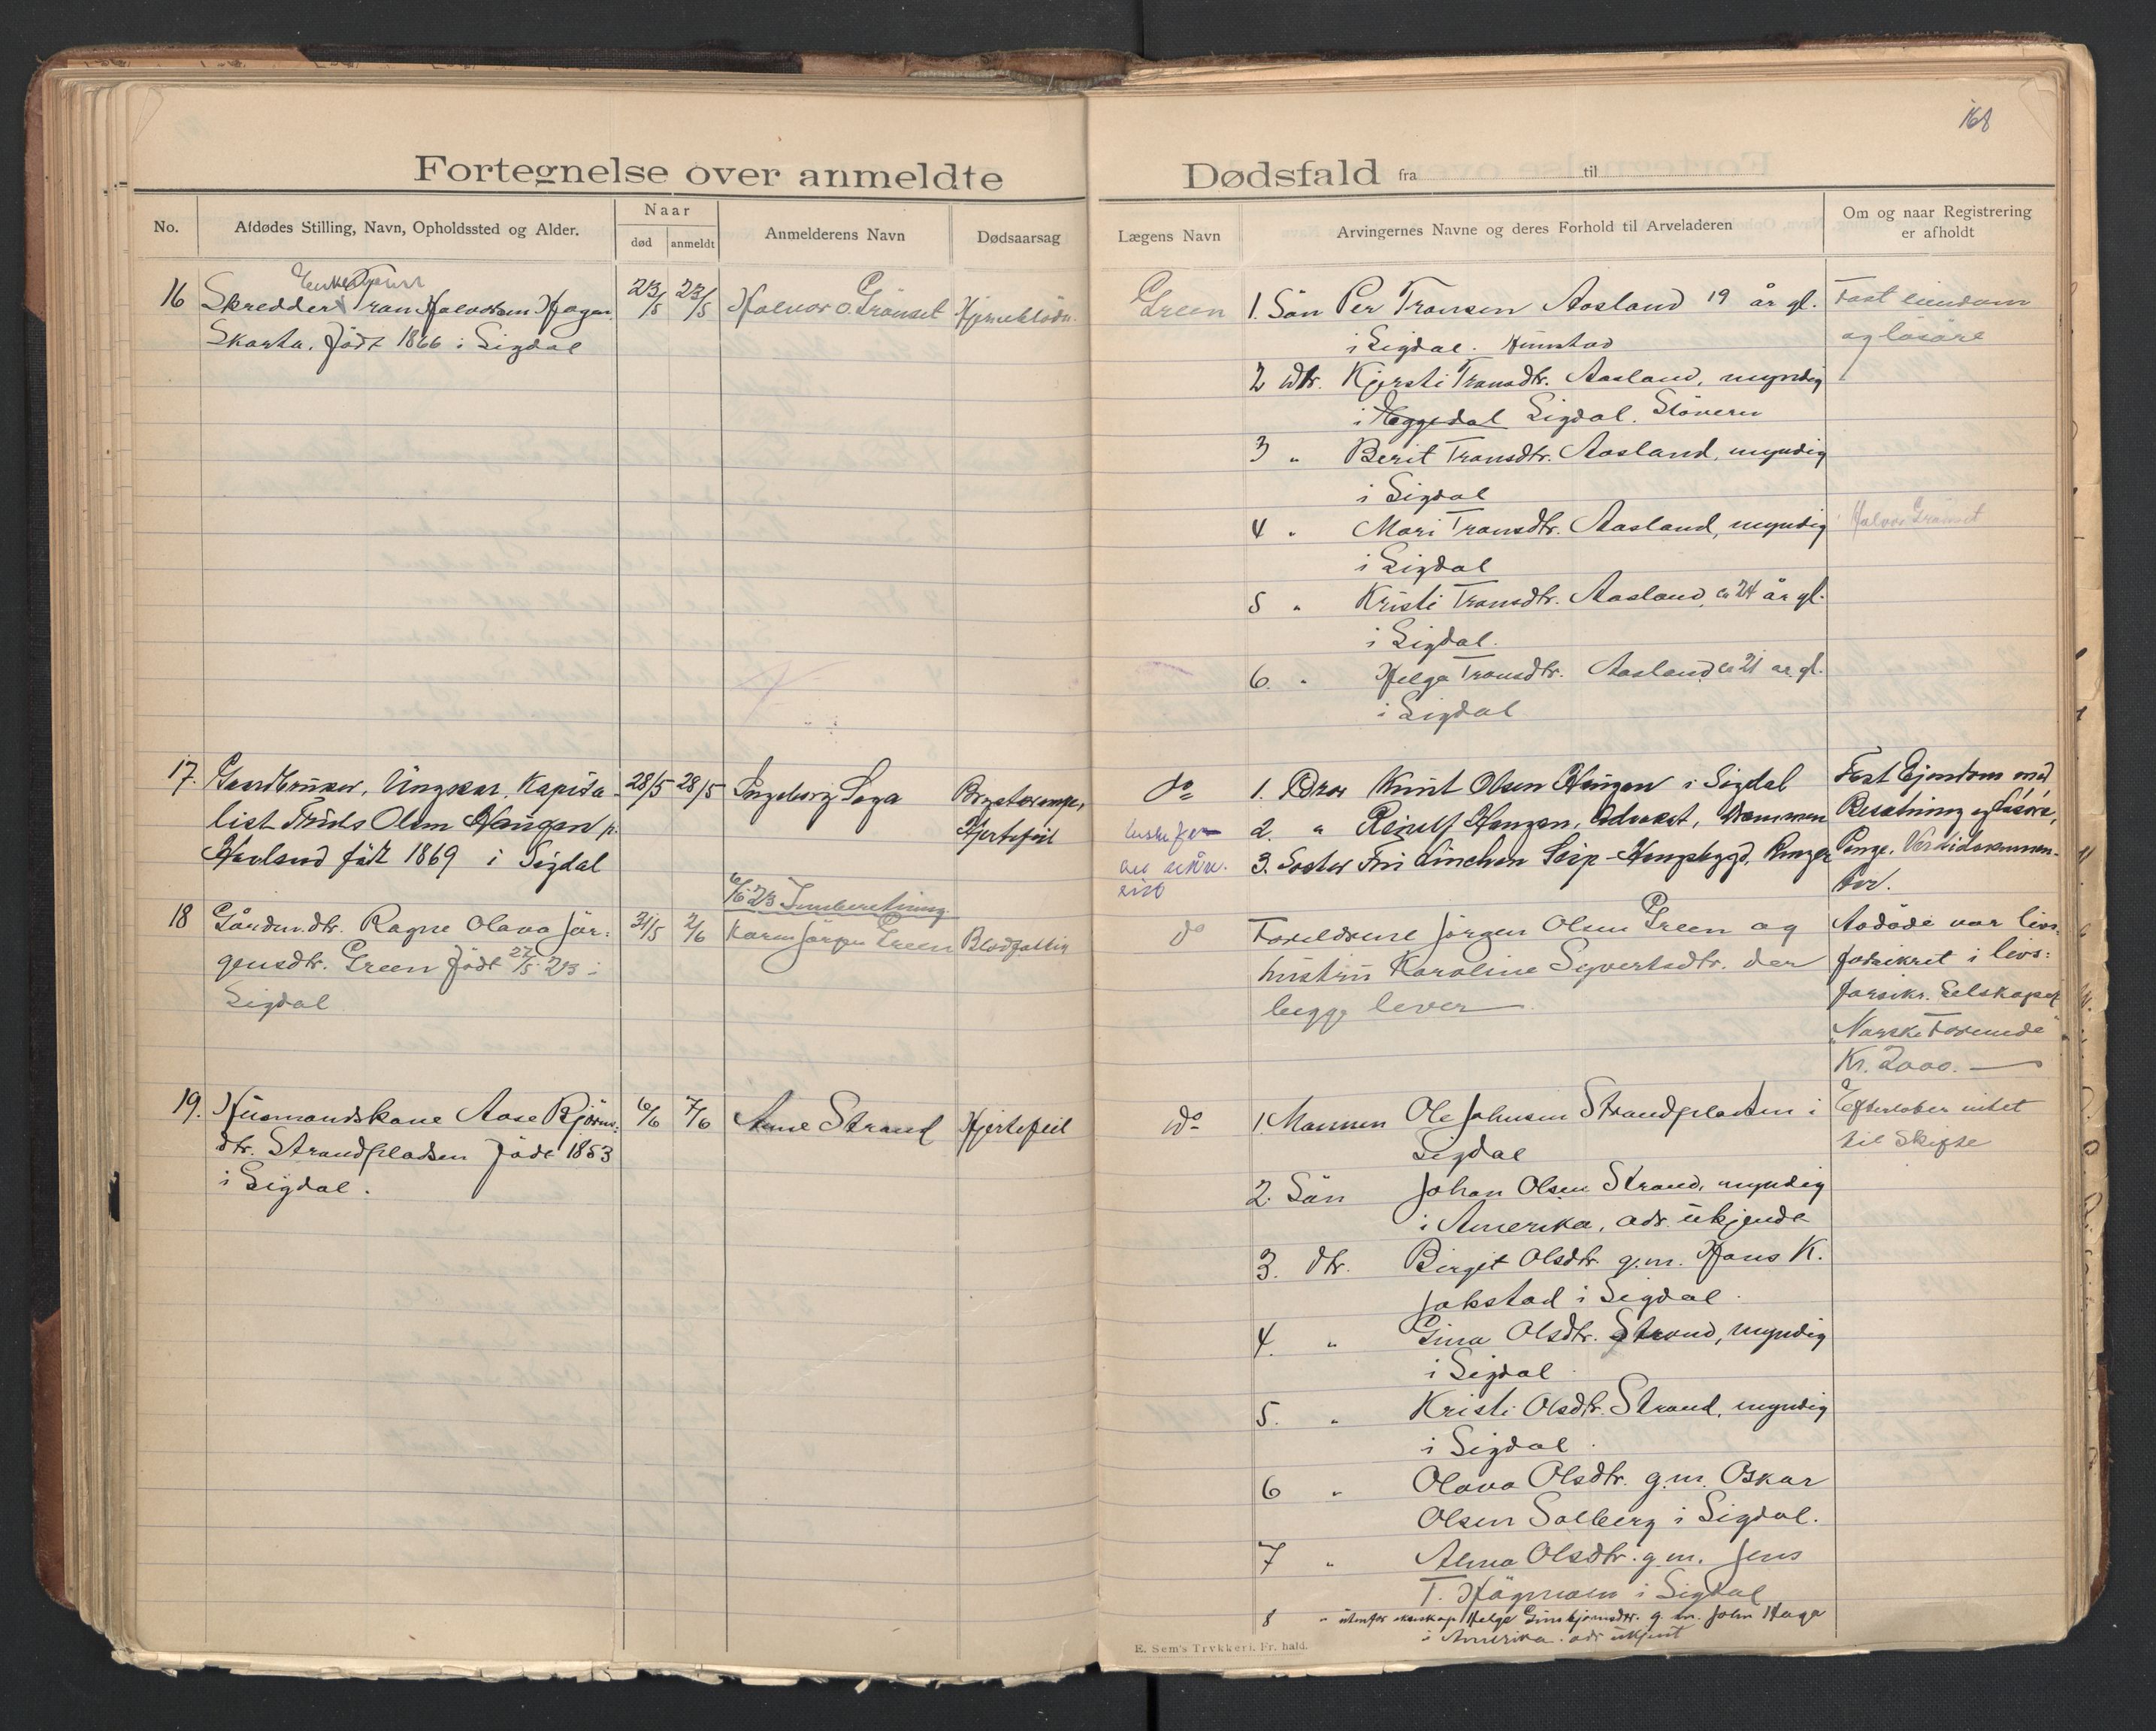 168
Fortegnelse over anmeldte Dødsfald fra til
No.
Afdødes Stilling, Navn, Opholdssted og Alder.
Naar
død
anmeldt
Anmelderens Navn
Dødsaarsag
Lægens Navn
Arvingernes Navne og deres Forhold til Arveladeren
Om og naar Registrering
er afholdt
16
Skredder Tran Halvorsen Hagen
Skarta. Født 1866 i Sigdal
23/5
23/5
Halvor O. Grönset
Green
1. Sön Per Transen Aasland 19 år gl.
i Sigdal.
2 dtr. Kjersti Transdtr. Aasland, myndig
i Eggedal Sigdal.
3 " Berit Transdtr. Aasland, myndig
i Sigdal
4 " Mari Transdtr. Aasland, myndig
i Sigdal
5 " Kristi Transdtr. Aasland, ca 24 år gl.
i Sigdal.
6. " Helga Transdtr. Aasland ca 21 år gl.
i Sigdal
Fast eiendom
og løsøre
Halvor Grönset
17.
Gaardbruker, Ungkar, Kapita-
list Truls Olsen Haugen p.
Havland født 1869 i Sigdal
28/5
28/5
Ingeborg Saga
Brystkrampe,
Hjertefeil
do
1. Bror Knut Olsen Haugen i Sigdal
2. " Haugen, Advokat, Drammen
3. Søster
Fast Ejendom med
Besætning og Løsøre,
Penge, Værdidokumen-
ter.
18
Gårdm. dtr. Ragne Olava Jör-
gensdtr. Green Født 27/5 23 i
Sigdal
31/5
2/6
6/6 23 Innberetning
Karen Jörgen Green
do
Foreldrene Jörgen Olsen Green og
hustru Karoline Syvertsdtr. der
begge lever
Avdøde var livs-
forsikret i livs-
forsikr. Selskapet
"Norske Forenede"
Kr. 2000.—
19.
Husmandskone Aase Bjørns-
dtr. Strandpladsen Født 1853
i Sigdal.
6/6
7/6
Anne Strand
Hjertefeil
do
1. Mannen Ole Johnsen Strandpladsen i
Sigdal
2. Sön Johan Olsen Strand, myndig
i Amerika, adr. ukjendt
3. dtr. Birgit Olsdtr. g.m. Hans K.
Jokstad i Sigdal.
4. " Gina Olsdtr. Strand, myndig
i Sigdal
5. " Kristi Olsdtr. Strand, myndig
i Sigdal.
6 " Olava Olsdtr. g.m. Oskar
Olsen Solberg i Sigdal.
7 " Alma Olsdtr. g.m. Jens
T. i Sigdal
8 " utenfor ekteskap Helga g.m. John Haga
i Amerika. adr ukjent
Efterlader intet
til Skifte
E. Sem's Trykkeri, Fr. hald.